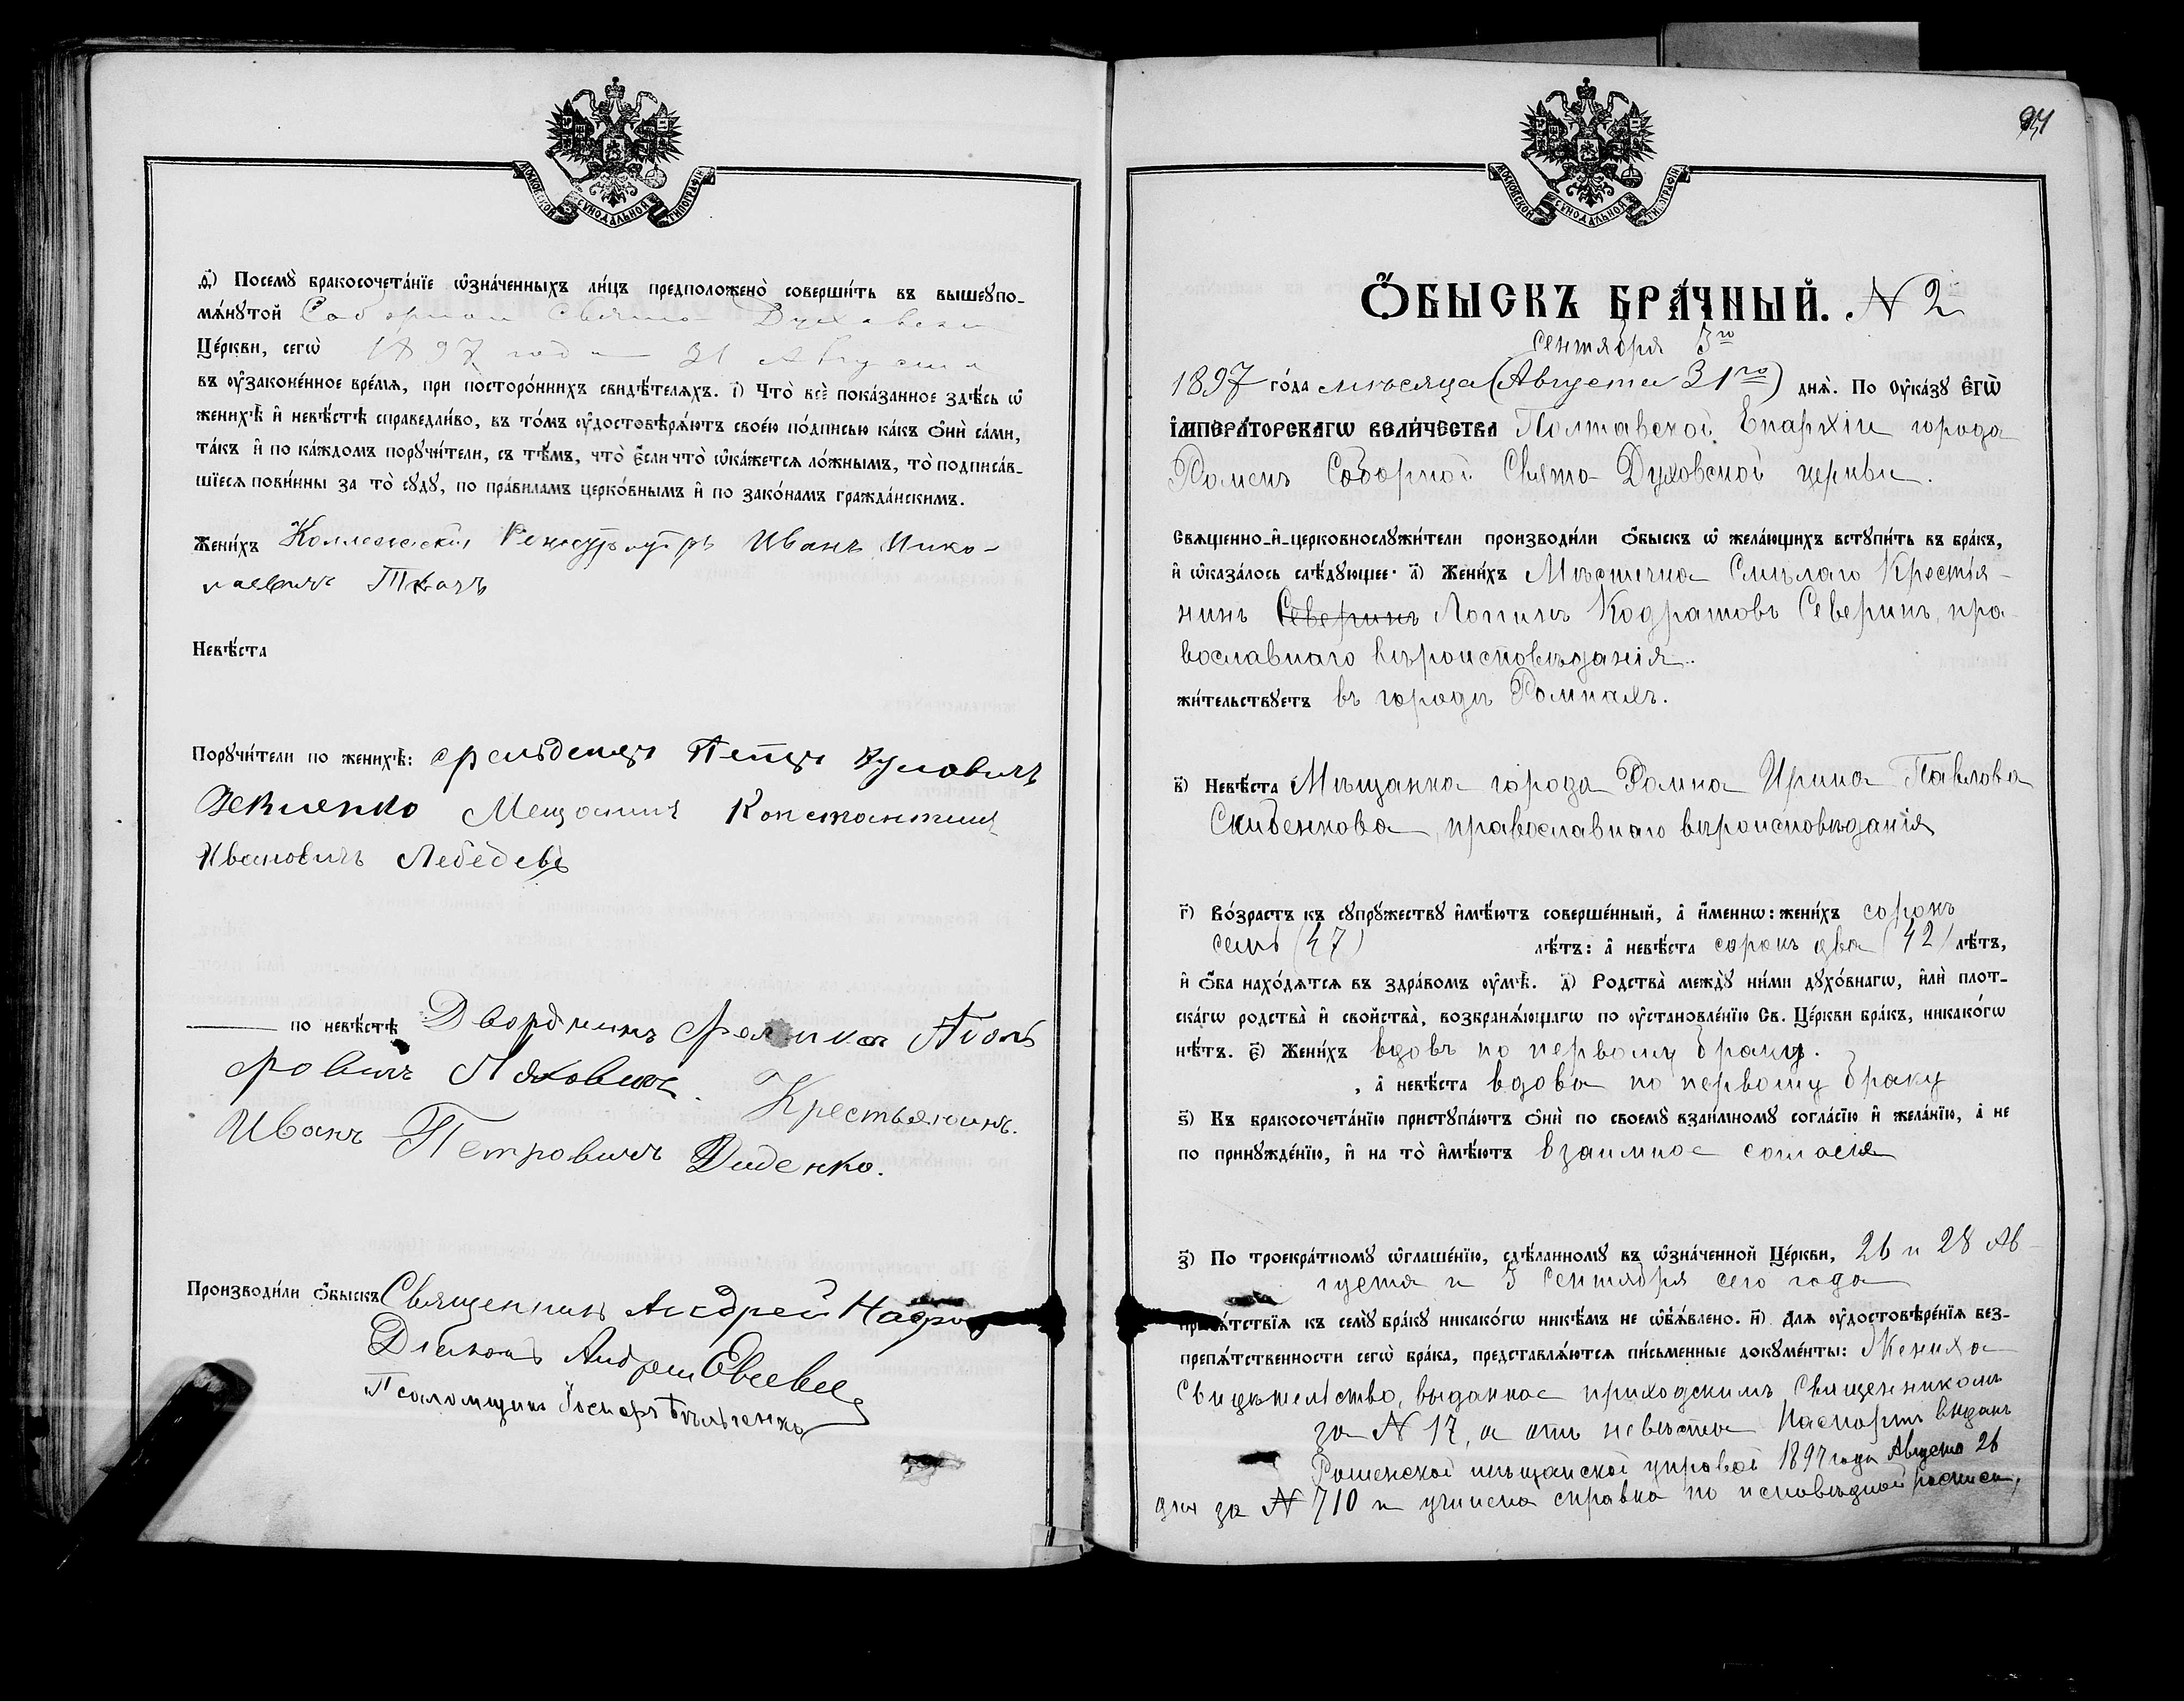 МОСКОВСКОЙ СУНОДАЛЬНОЙ ТИПОГРАФІИ
д҃) Посемꙋ̀ бракосочета́нїе ѡ҆зна́ченныхъ ли́цъ предположено̀ соверши́ть въ вышеꙋпо-
мѧ́нꙋтой Соборной Свято Духовской
Це́ркви, сегѡ̀ 1897 года 31 Августа
въ ᲂу҆законе́нное вре́мѧ, при посторо́ннихъ свидѣ́телѧхъ. і҃) Что̀ всѐ пока́занное здѣ́сь ѡ҆
женихѣ̀ и҆ невѣ́стѣ справедли́во, въ то́мъ ᲂу҆достовѣрѧ́ютъ свое́ю по́дписью ка́къ ѻ҆нѝ са́ми,
та́къ и҆ по ка́ждомъ порꙋчи́тели, съ тѣ́мъ, что̀ є҆́сли что̀ ѡ҆ка́жетсѧ ло́жнымъ, то̀ подписа́в-
шїесѧ пови́нны за то̀ сꙋдꙋ̀, по пра́виламъ церко́внымъ и҆ по зако́намъ гражда́нскимъ.
Жени́хъ Коллежскій Регистраторъ Иванъ Нико-
лаевичъ Ткачъ
Невѣ́ста
Порꙋчи́тели по женихѣ̀: фельдшеръ Петръ
Мещанинъ Константинъ
Ивановичъ Лебедевъ
по невѣ́стѣ Дворянинъ
Ляховичъ. Крестьянинъ.
Иванъ Петровичъ Диденко.
Производи́ли ѻ҆́быскъ Священникъ Андрей
Діаконъ Андрей Евсевс
Псаломщикъ
94
МОСКОВСКОЙ СУНОДАЛЬНОЙ ТИПОГРАФІИ
Ѻ҆́БЫСКЪ БРА́ЧНЫЙ. N 2
Сентября 5го
1897 го́да мѣсяца (Августа 31го) днѧ̀. По ᲂу҆ка́зꙋ є҆гѡ̀
і҆мпера́торскагѡ вели́чества Полтавской Епархіи города
Роменъ Соборной Свято-Духовской церкви.
Сващенно-и҆-церковнослꙋжи́тели производи́ли ѻ҆́быскъ ѡ҆ жела́ющихъ встꙋпи́ть въ бра́къ,
и҆ ѡ҆каза́лось слѣ́дꙋющее: а҃) Жени́хъ Мѣстечка Смѣлаго Крестья-
нинъ Северинъ Логинъ Кодратовъ Северинъ, пра-
вославнаго вѣроисповѣданія.
жи́тельствꙋетъ въ городѣ Ромнахъ.
в҃) Невѣ́ста Мѣщанка города Ромна Ирина Павлова
Скибенкова, православнаго вѣроисповѣданія
г҃) Во́зрастъ къ сꙋпрꙋ́жествꙋ и҆мѣ́ютъ соверше́нный, а҆ и҆́меннѡ: жени́хъ сорокъ
семь (47) лѣ́тъ: а҆ невѣ́ста сорокъ два (42) лѣ́тъ,
и҆ ѻ҆́ба нахо́дѧтсѧ въ здра́вомъ ᲂу҆мѣ̀. д҃) Родства̀ междꙋ̀ ни́ми дꙋхо́внагѡ, и҆лѝ плот-
ска́гѡ родства̀ и҆ свойства̀, возбранѧ́ющагѡ по ᲂу҆становле́нїю Св. Це́ркви бра́къ, никако́гѡ
нѣ́тъ. є҃) Жени́хъ вдовъ по первому браку.
, а҆ невѣ́ста вдова по первому браку
ѕ҃) Къ бракосочета́нїю пристꙋпа́ютъ ѻ҆нѝ по своемꙋ̀ взаи́мномꙋ согла́сїю и҆ жела́нїю, а҆ не
по принꙋжде́нїю, и҆ на то̀ и҆мѣ́ютъ взаимное согласіе
з҃) По троекра́тномꙋ ѡ҆глаше́нїю, сдѣ́ланномꙋ въ ѡ҆зна́ченной Це́ркви, 26 и 28 Ав-
густа и 5 Сентября сего года
препѧ́тствїѧ къ семꙋ̀ бра́кꙋ никако́гѡ никѣ́мъ не ѡ҆б̾ѧ́влено. и҃) Длѧ ᲂу҆достовѣре́нїѧ без-
препѧ́тственности сегѡ̀ бра́ка, представлѧ́ютсѧ пи́сьменные докꙋме́нты: Жениха
Свидѣтельство, выданное приходскимъ Священникомъ
за N 17, а отъ невѣста Паспортъ выданъ
Роменской мѣщанской управой 1897 года Августа 26
дня за N 710 и учинена справка по исповѣдной росписи,